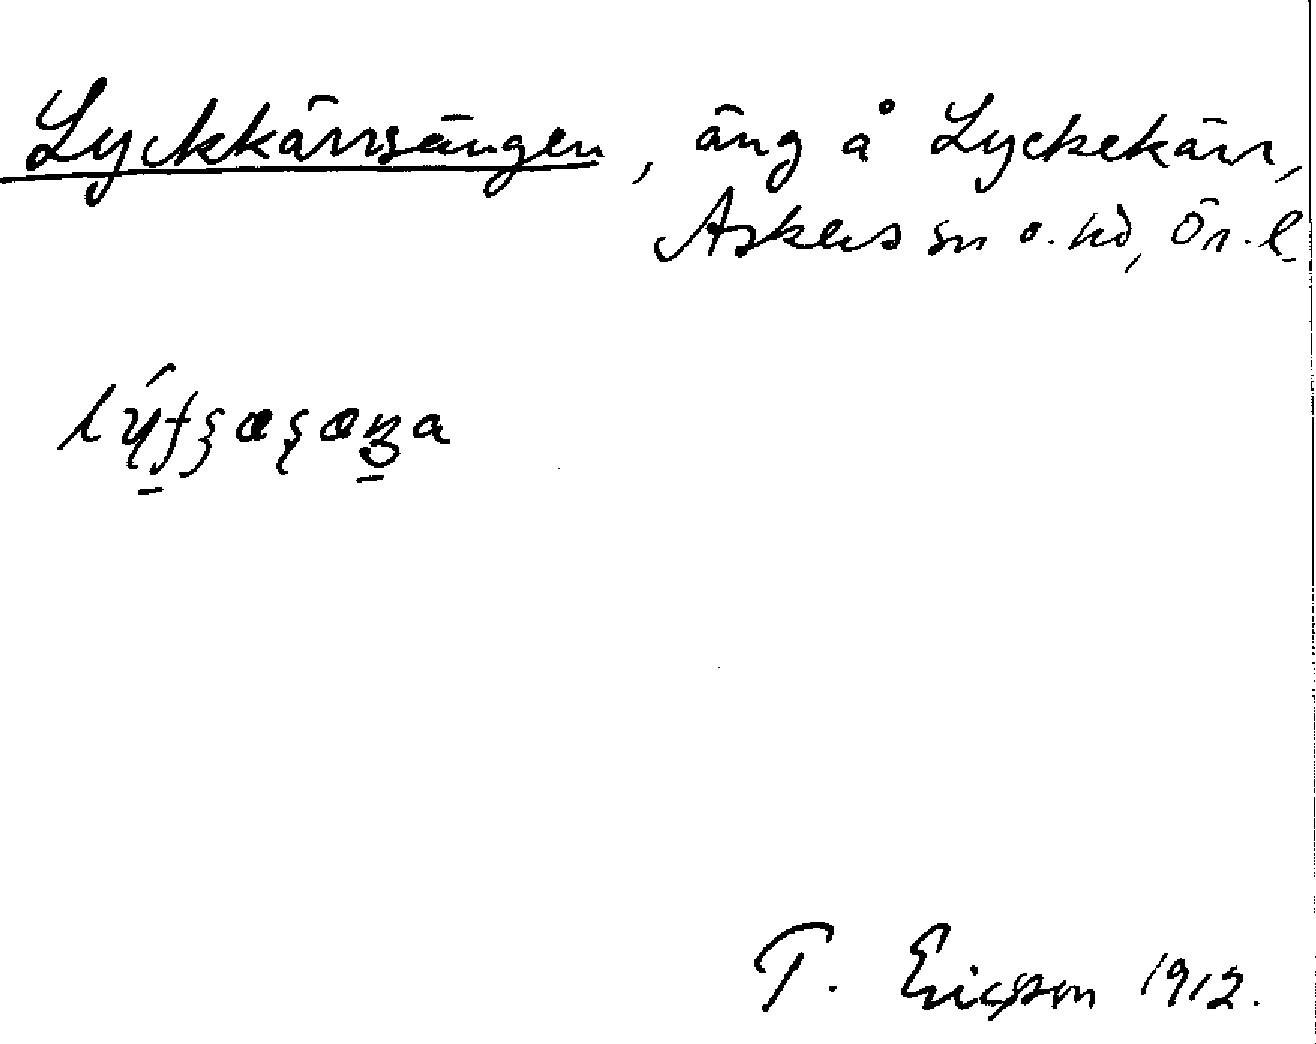 Lyckkärrsängen, äng å Lyckekärr,
Askers sn o. hd, Ör. l.
T. Ericsson 1912.